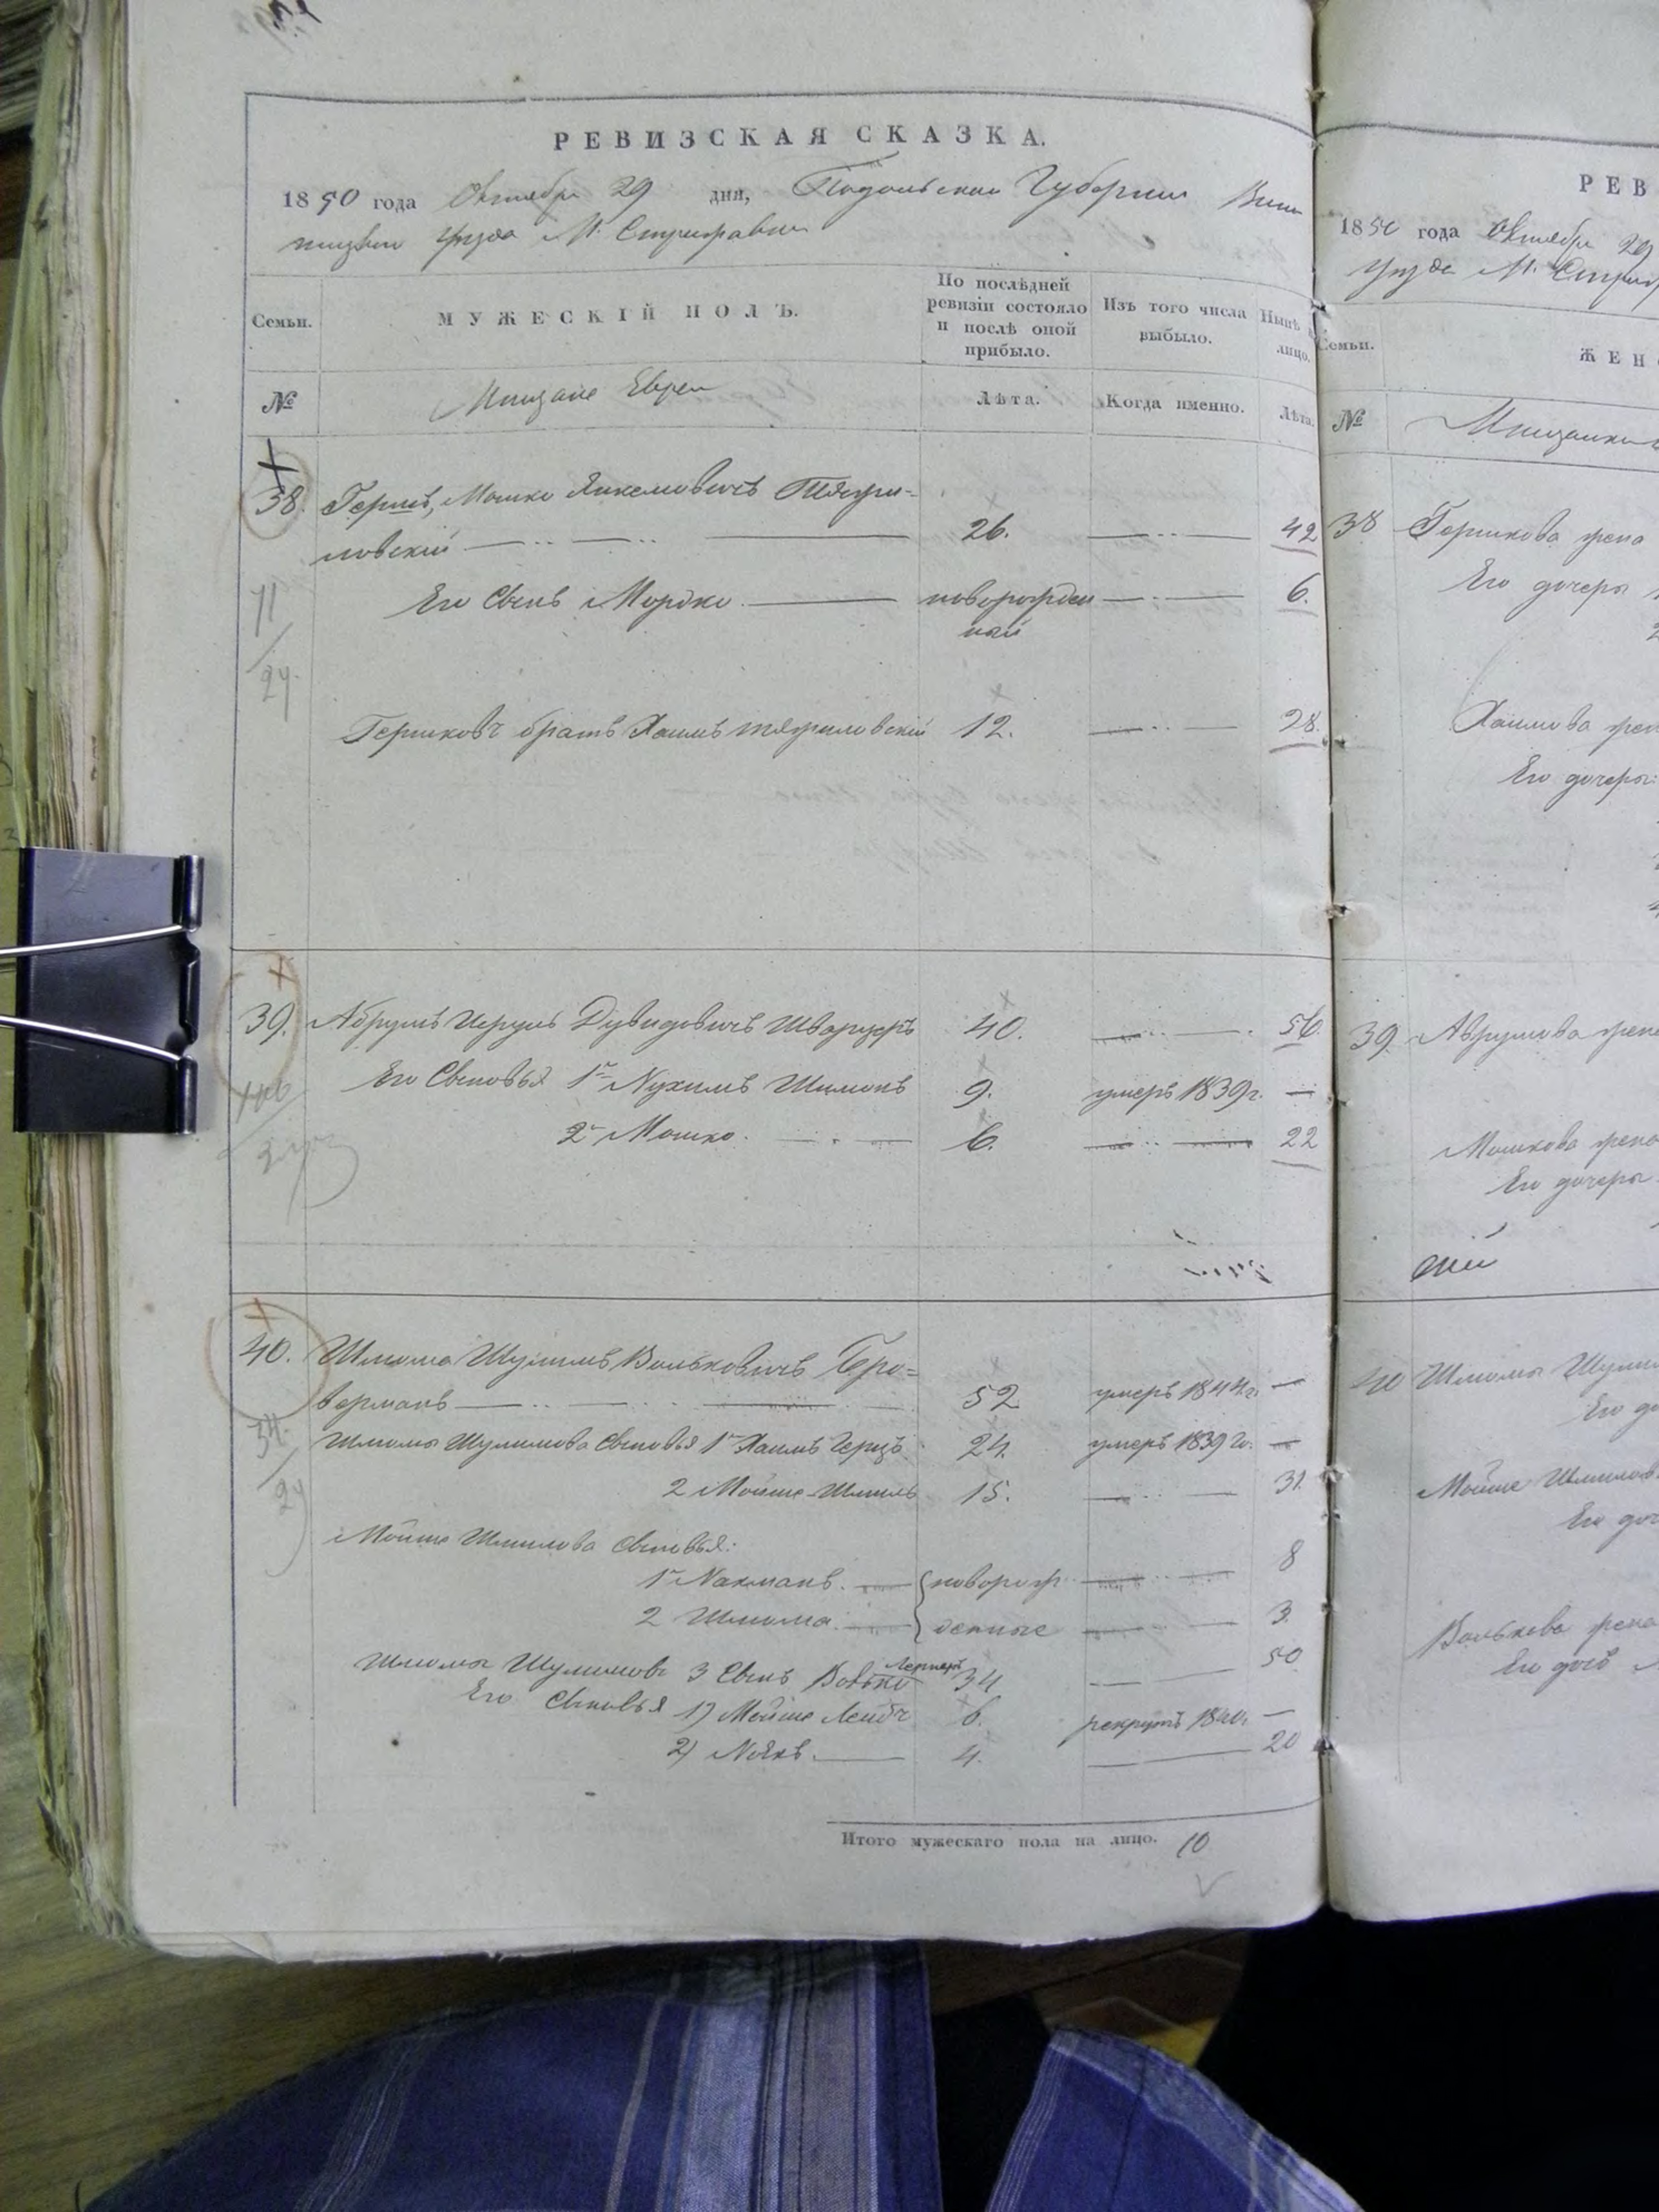 РЕВИЗСКАЯ СКАЗКА.
1850 года Октября 29 дня, Подольской Губернии Вин
ницкой уезда М. Стрижавки
Семьи.
МУЖЕСКІЙ ПОЛЪ.
По послѣдней
ревизіи состояло
и послѣ оной
прибыло.
Изъ того числа
выбыло.
Нынѣ
лицо.
№
Мещане Евреи
Лѣта.
Когда именно.
Лѣта.
38. Гершъ, Мошко Янкелевичъ Тяжи=
ловскій 26. 42
Его Сынъ Мордко новорожден 6.
ный
11
24
Гершковъ братъ Хаимъ тяжиловскій 12. 28.
39. Абрумъ Исруль Дувидовичъ Шварцеръ 40. 56
Его Сыновья 1й Нухимъ Шимонъ 9. умеръ 1839г. —
2й Мошко. 6. 22
40. Шлиома Шулимъ Вольковичъ Бро=
верманъ 52 умеръ 1844г. —
34
24
Шлиомы Шулимова Сыновья 1й Хаимъ Герцъ 24. умеръ 1839 го. —
2 Мойше Шмиль 15. 31.
Мойше Шмилова Сыновья:
1й Нахманъ. новорож 8
2 Шлиома. денные 3.
Шлиомы Шулимова 3 Сынъ Волько Лернеръ 34 50
Его Сыновья 1) Мойше Лейбъ 6. рекрутъ 1840. —
2) Ноякъ. 4. 20
Итого мужескаго пола на лицо. 10
РЕВ
1850 года Октября 29
уезда М. Стриж
Семьи.
ЖЕН
№
Мещанки
38 Гершкова жена
Его дочери
Хаимова жен
Его дочери:
39. Аврумова жена
Мошкова жена
Его дочери
40 Шлиомы Шулим
Его до
Мойше Шмилов
Его доч
Волькова жена
Его дочь